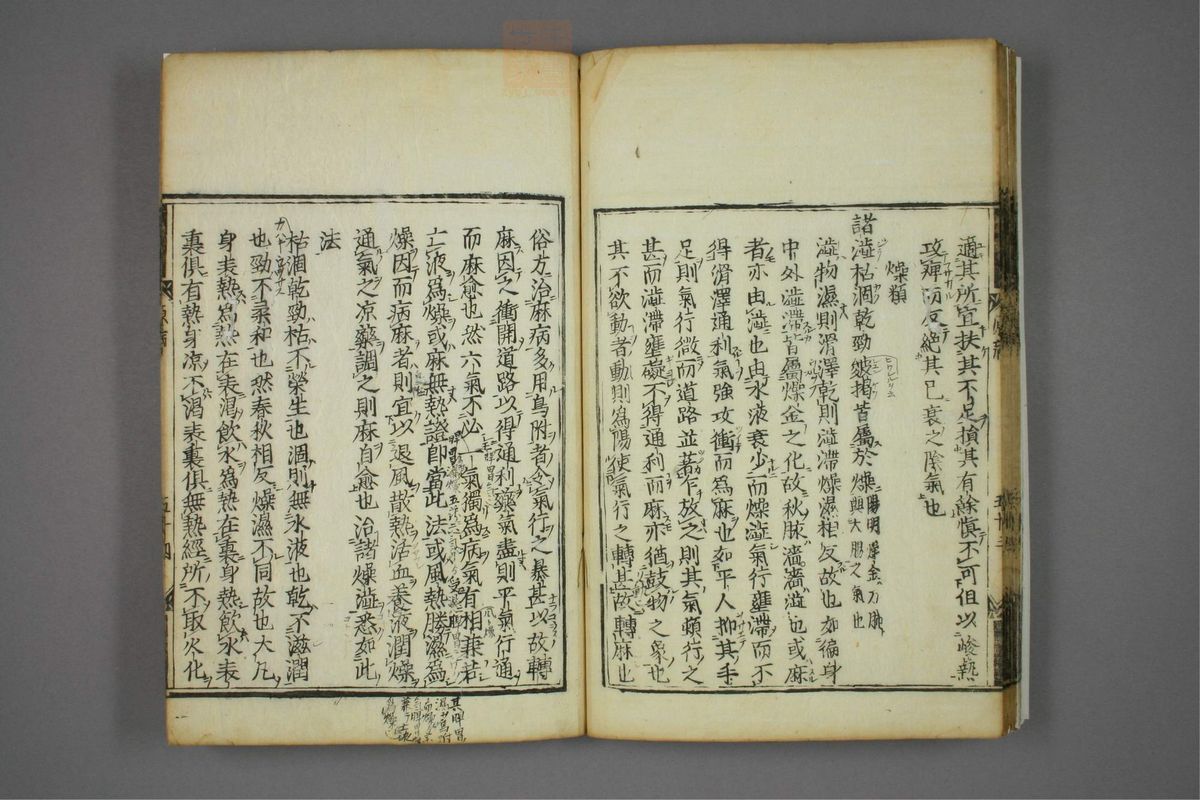 適其所宜扶其不足損其有餘慎不可但以峻熱
攻痺而反絕其已衰之陰氣也
燥類
諸澁枯涸乾勁皴揭皆屬於燥陽明燥金乃肺與大腸之氣也
澁物濕則滑澤乾則澁滯燥濕相反故也如偏身
中外澁滯皆屬燥金之化故秋脉濇濇澁也或麻
者亦由澁也由水液衰少而燥澁氣行壅滯而不
得滑澤通利氣強攻衝而為麻也如平人抑其手
足則氣行微而道路並乍放之則其氣頓行之
甚而澁滯壅礙不得通利而麻亦猶鼓物之象也
其不欲動者動則為陽使氣行之轉甚故轉麻也
俗方治麻病多用烏附者令氣行之暴甚以故轉
麻因之衝開道路以得通利藥氣盡則平氣行通
而麻愈也然六氣不必一氣獨為病氣有相兼若
亡液為燥或麻無熱證即當此法或風熱勝濕為
燥因而病麻者則宜以退風散熱活血養液潤燥
通氣之凉藥調之則麻自愈也治諸燥澁悉如此
法
枯涸乾勁枯不榮生也涸則無水液也乾不滋潤
也勁不柔和也然春秋相反燥濕不同故也大凡
身表熱為熱在表渴飲水為熱在裏身熱飲水表
裏俱有熱身凉不渴表裏俱無熱經所不取火化